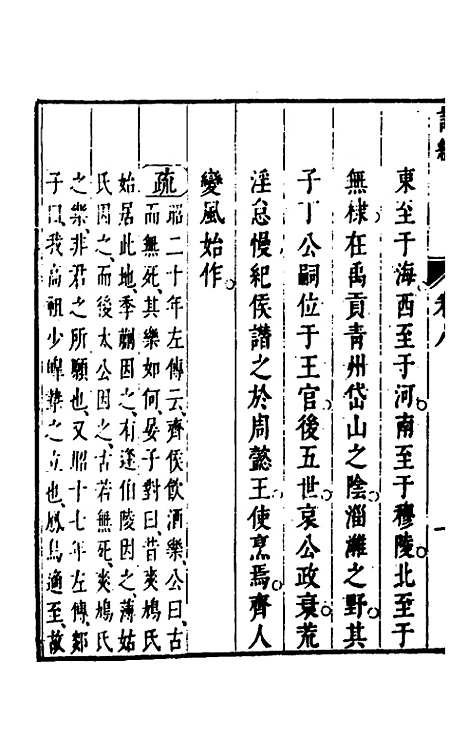 詩經
卷八
一
東至于海西至于河南至于穆陵北至于
無棣在禹貢青州岱山之陰濰淄之野其
子丁公嗣位于王官後五世哀公政衰荒
淫怠慢紀侯譖之於周懿王使烹焉齊人
變風始作
疏昭二十年左傳云齊侯飲酒樂公曰古
而無死其樂如何晏子對曰昔爽鳩氏
始居此地季萴因之有逢伯陵因之薄姑
氏因之而後太公因之古若無死爽鳩氏
之樂非君之所願也又昭十七年左傳郯
子曰我高祖少皞摯之立也鳳鳥適至故